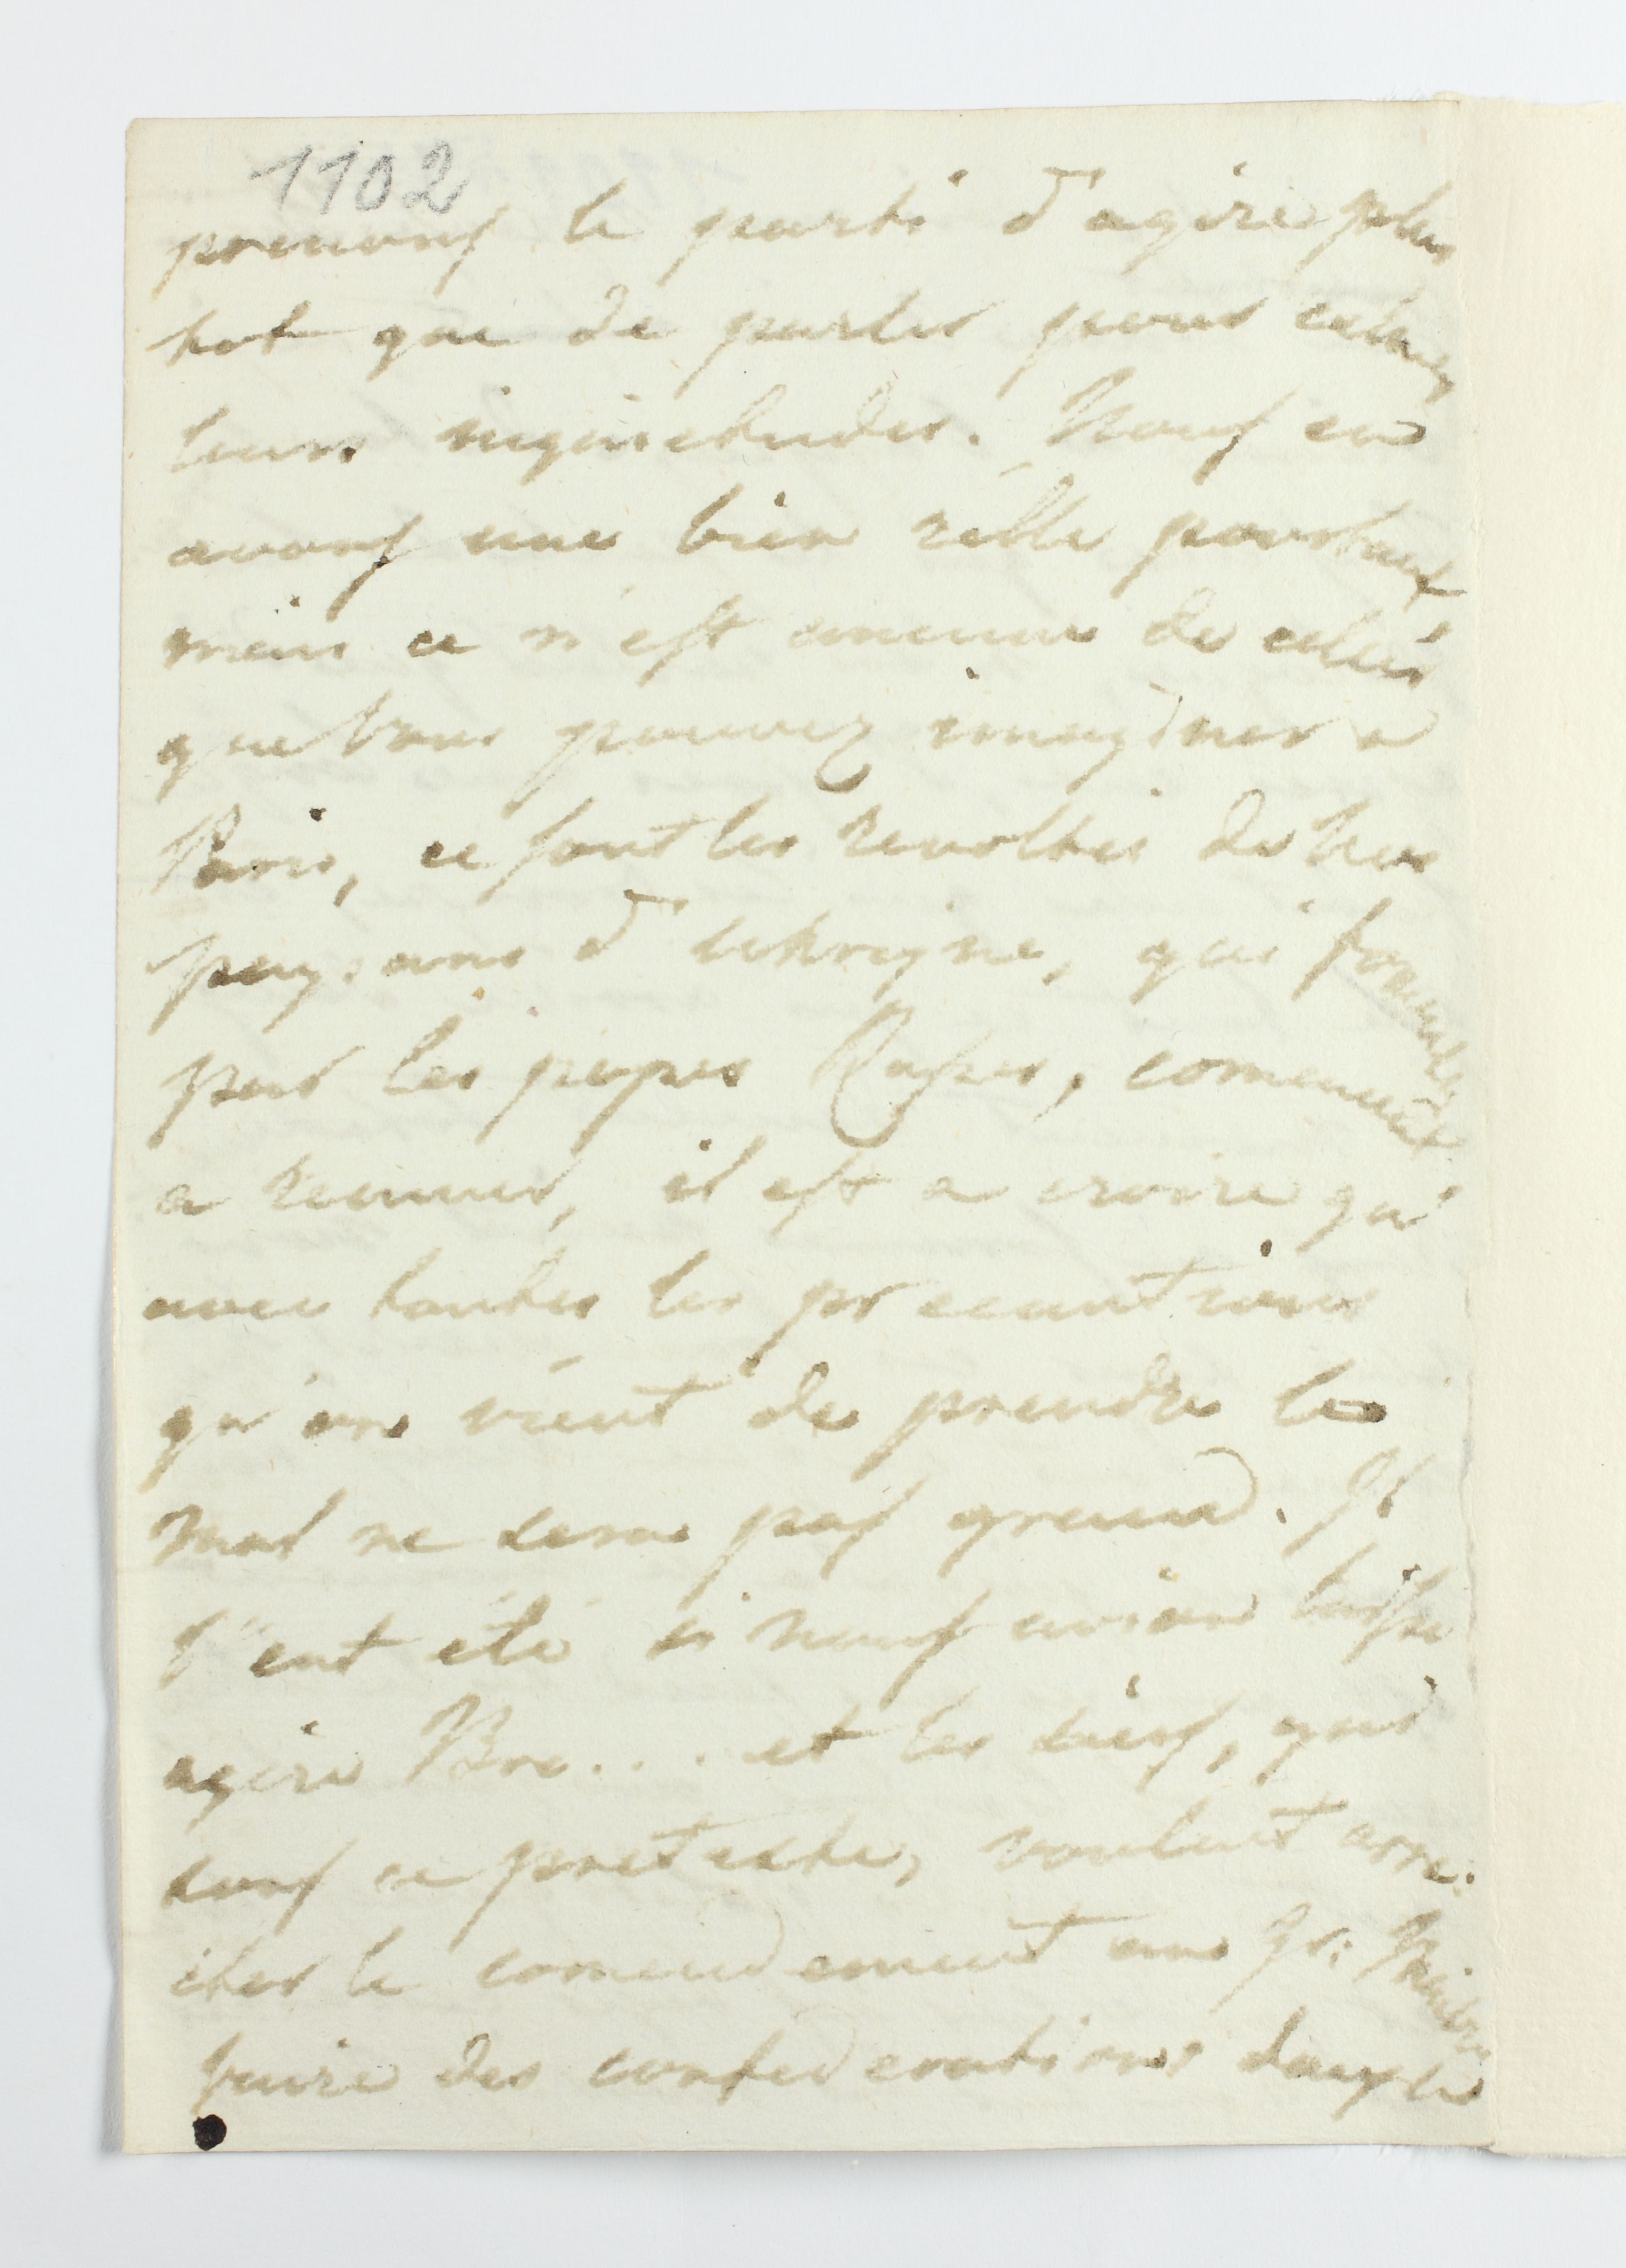 1102
prenons le parti d'agire plus
tot que de parler pour calmer
leurs inquietudes. Nous en
avons une bien réelle pourtant
mais ce n'est aucune de celles
que vous pouvez imaginer a
Paris, ce sont les revoltes de nos
paysans d'Ukrayne, qui fomentés
par les popes Russes, comencent
a remuer, il est a croire qu'
avec toutes les precautions
qu'on vient de prendre le
mal ne sera pas grand. Il
l'eut été si nous avions laisse
agire Bra... et les siens, qui
sous ce pretexte, voulant arra:
cher le comendement au Gr:
faire des confederations dans le